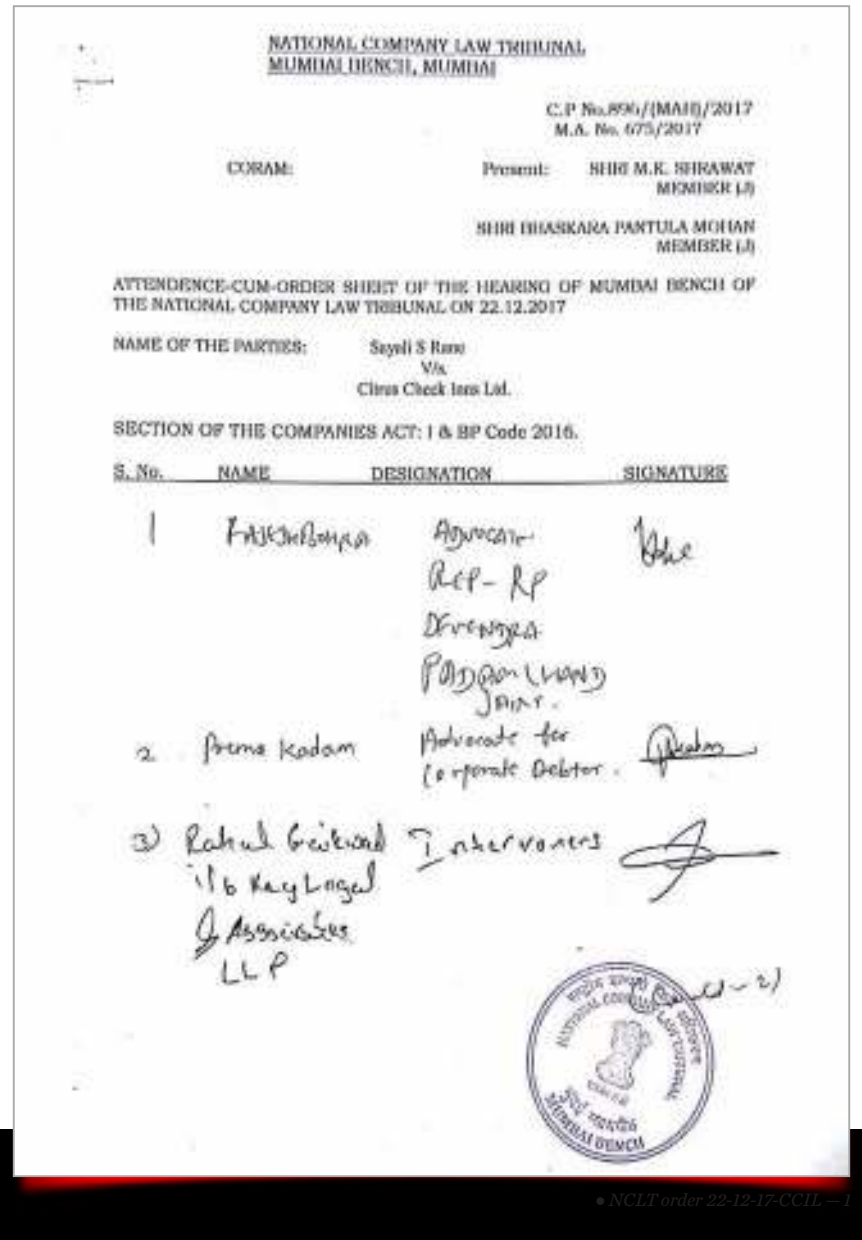 NATIONAL COMPANY LAW TRIBUNAL
MUMBAI BENCH, MUMBAI
C.P No.896/(MAH)/2017
M.A. No. 675/2017
CORAM: Present: SHRI M.K. SHRAWAT
MEMBER (J)
SHRI BHASKARA PANTULA MOHAN
MEMBER (J)
ATTENDENCE-CUM-ORDER SHEET OF THE HEARING OF MUMBAI BENCH OF
THE NATIONAL COMPANY LAW TRIBUNAL ON 22.12.2017
NAME OF THE PARTIES: Sayali S Rane
V/s.
Citrus Check Inns Ltd.
SECTION OF THE COMPANIES ACT: I & BP Code 2016.
S. No. NAME DESIGNATION SIGNATURE
1 RAJESH BOHRA ADVOCATE
REP- RP
DEVENDRA
PADAMCHAND
JAIN.
2 Prema Kadam Advocate for
Corporate Debtor.
3) Rahul Gaikwad Interveners
i/b Kay Legal
& Associates
LLP
NATIONAL COMPANY LAW TRIBUNAL
MUMBAI BENCH
● NCLT order 22-12-17-CCIL — 1